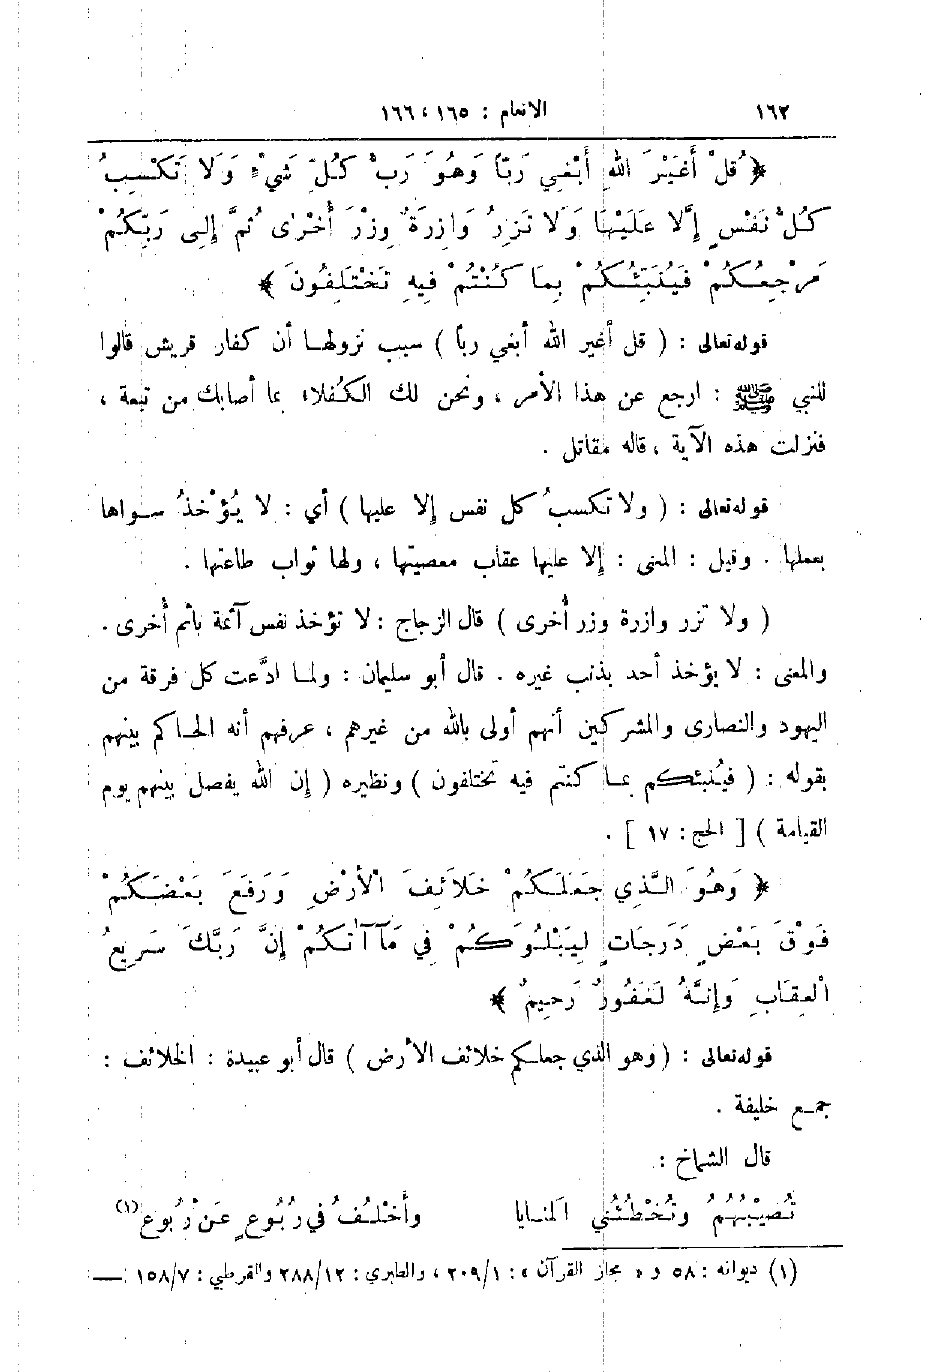 ١٦٢ الانعام : ١٦٥ ، ١٦٦
﴿ قُلْ أَغَيْرَ اللهِ أَبْغِي رَبًّا وَهُوَ رَبُّ كُلِّ شَيْءٍ وَلَا تَكْسِبُ
كُلُّ نَفْسٍ إِلَّا عَلَيْهَا وَلَا تَزِرُ وَازِرَةٌ وِزْرَ أُخْرَى ثُمَّ إِلَى رَبِّكُمْ
مَرْجِعُكُمْ فَيُنَبِّئُكُمْ بِمَا كُنْتُمْ فِيهِ تَخْتَلِفُونَ ﴾
قوله تعالى : ( قل أغير الله أبغي رباً ) سبب نزولها أن كفار قريش قالوا
للنبي ﷺ : ارجع عن هذا الأمر ، ونحن لك الكُفلاء بما أصابك من تبعة ،
فنزلت هذه الآية ، قاله مقاتل .
قوله تعالى : ( ولا تكسبُ كل نفس إلا عليها ) أي : لا يُؤْخذُ سواها
بعملها . وقيل : المعنى : إلا عليها عقاب معصيتها ، ولها ثواب طاعتها .
( ولا تزر وازرة وزر أُخرى ) قال الزجاج : لا تؤخذ نفس آثمة بأثم أُخرى .
والمعنى : لا يؤخذ أحد بذنب غيره . قال أبو سليمان : ولما ادَّعت كل فرقة من
اليهود والنصارى والمشركين أنهم أولى بالله من غيرهم ، عرفهم أنه الحاكم بينهم
بقوله : ( فيُنبئكم بما كنتم فيه تختلفون ) ونظيره ( إن الله يفصل بينهم يوم
القيامة ) [ الحج : ١٧ ] .
﴿ وَهُوَ الَّذِي جَعَلَكُمْ خَلَائِفَ الْأَرْضِ وَرَفَعَ بَعْضَكُمْ
فَوْقَ بَعْضٍ دَرَجَاتٍ لِيَبْلُوَكُمْ فِي مَآ آتٰكُمْ إِنَّ رَبَّكَ سَرِيعُ
الْعِقَابِ وَإِنَّهُ لَغَفُورٌ رَحِيمٌ ﴾
قوله تعالى : ( وهو الذي جعلكم خلائف الأرض ) قال أبو عبيدة : الخلائف :
جمع خليفة .
قال الشماخ :
تُصِيْبُهُمُ وتُخْطِئُني المنايا وأَخْلُفُ في رُبُوعٍ عَنْ رُبُوعِ (١)
(١) ديوانه : ٥٨ و « مجاز القرآن » : ٢٠٩/١ ، والطبري : ٢٨٨/١٢ والقرطبي : ١٥٨/٧ :